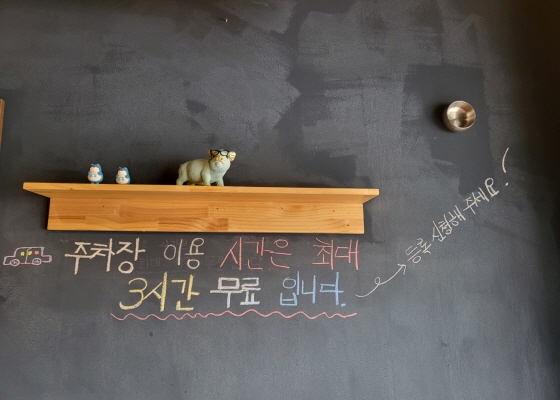 주차장 이용 시간은 최대
3시간 무료 입니다.
등록 신청해 주세요!